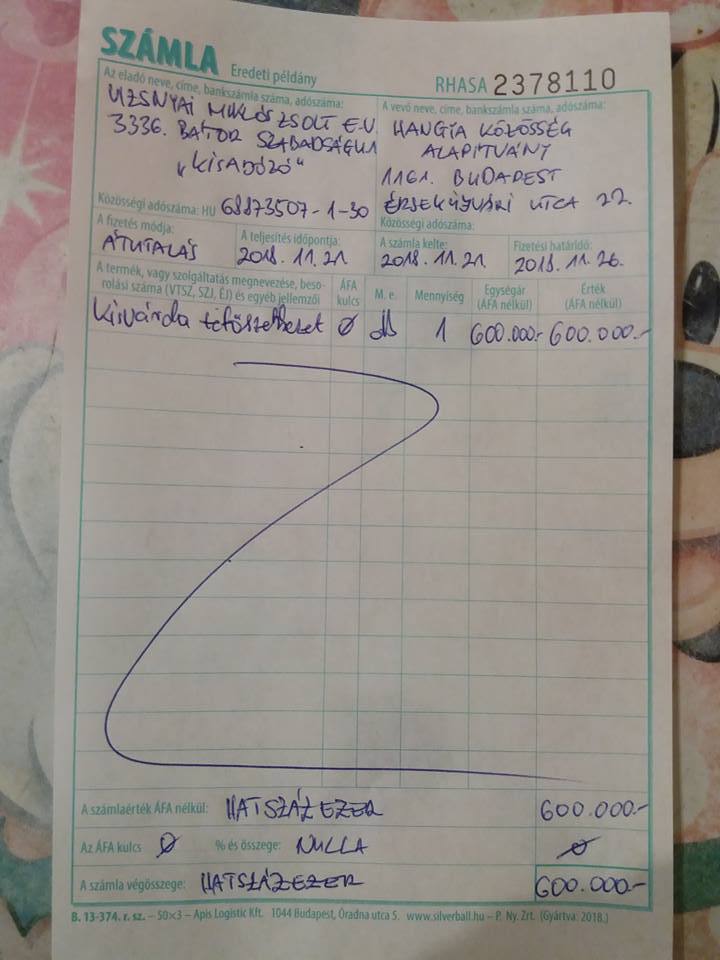 SZÁMLA Eredeti példány
RHASA 2378110
Az eladó neve, címe, bankszámla száma, adószáma:
UZSNYAI MIKLÓS ZSOLT E.V.
3336. BÁTOR SZABADSÁG
"KISADÓZÓ"
Közösségi adószáma: HU 68873507-1-30
A vevő neve, címe, bankszámla száma, adószáma:
HANGYA KÖZÖSSÉG
ALAPITVÁNY
1161. BUDAPEST
ÉRSEKÚJVÁRI UTCA 22.
Közösségi adószáma:
A fizetés módja:
ÁTUTALÁS
A teljesítés időpontja:
2018.11.21.
A számla kelte:
2018.11.21.
Fizetési határidő:
2018.11.26.
A termék, vagy szolgáltatás megnevezése, beso-
rolási száma (VTSZ, SZJ, ÉJ) és egyéb jellemzői
ÁFA
kulcs
M. e.
Mennyiség
Egységár
(ÁFA nélkül)
Érték
(ÁFA nélkül)
Kisvárda tetőszerkezet Ø db 1 600.000.- 600.000.-
A számlaérték ÁFA nélkül: HATSZÁZEZER 600.000.-
Az ÁFA kulcs Ø % és összege: NULLA Ø
A számla végösszege: HATSZÁZEZER 600.000.-
B. 13-374. r. sz. – 50×3 – Apis Logistic Kft. 1044 Budapest, Óradna utca 5. www.silverball.hu – P. Ny. Zrt. (Gyártva: 2018.)